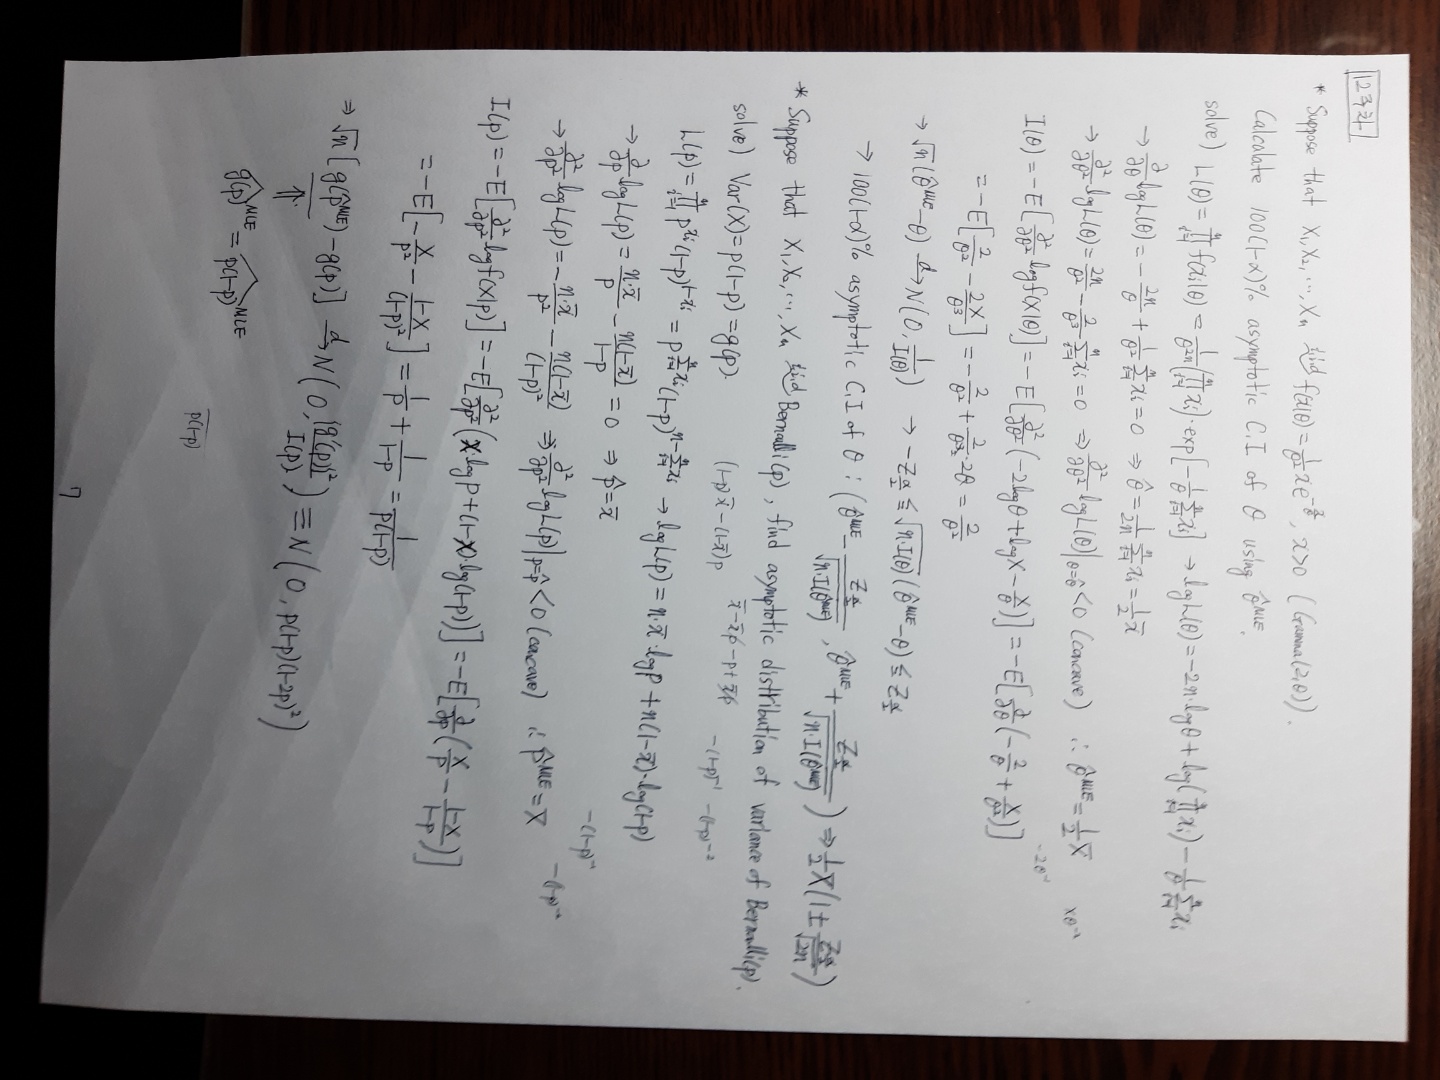 12주차
* Suppose that X₁, X₂, ⋯, Xₙ iid f(x|θ) = 1/θ² x e^(-x/θ), x>0 (Gamma(2,θ)).
Calculate 100(1-α)% asymptotic C.I of θ using θ̂^MLE.
solve) L(θ) = ∏_{i=1}^n f(xᵢ|θ) = 1/θ^{2n} (∏_{i=1}^n xᵢ)·exp[-1/θ ∑_{i=1}^n xᵢ] → log L(θ) = -2n·log θ + log(∏_{i=1}^n xᵢ) - 1/θ ∑_{i=1}^n xᵢ
→ ∂/∂θ log L(θ) = -2n/θ + 1/θ² ∑_{i=1}^n xᵢ = 0 ⇒ θ̂ = 1/2n ∑_{i=1}^n xᵢ = 1/2 x̄
→ ∂²/∂θ² log L(θ) = 2n/θ² - 2/θ³ ∑_{i=1}^n xᵢ = 0 ⇒ ∂²/∂θ² log L(θ)|_{θ=θ̂} < 0 (concave) ∴ θ̂^MLE = 1/2 X̄
I(θ) = -E[∂²/∂θ² log f(X|θ)] = -E[∂²/∂θ² (-2log θ + log X - X/θ)] = -E[∂/∂θ (-2/θ + X/θ²)]
= -E[2/θ² - 2X/θ³] = -2/θ² + 2/θ³·2θ = 2/θ²
→ √n (θ̂^MLE - θ) →d N(0, 1/I(θ)) → -Z_{α/2} ≤ √(n·I(θ)) (θ̂^MLE - θ) ≤ Z_{α/2}
→ 100(1-α)% asymptotic C.I of θ : (θ̂^MLE - Z_{α/2}/√(n·I(θ̂^MLE)), θ̂^MLE + Z_{α/2}/√(n·I(θ̂^MLE))) ⇒ 1/2 X̄ (1 ± Z_{α/2}/√(2n))
* Suppose that X₁, X₂, ⋯, Xₙ iid Bernoulli(p), find asymptotic distribution of variance of Bernoulli(p).
solve) Var(X) = p(1-p) = g(p).
(1-p)x̄ - (1-x̄)p
x̄ - x̄p - p + x̄p
-(1-p)⁻¹ -(1-p)⁻²
L(p) = ∏_{i=1}^n p^{xᵢ} (1-p)^{1-xᵢ} = p^{∑_{i=1}^n xᵢ} (1-p)^{n-∑_{i=1}^n xᵢ} → log L(p) = n·x̄·log p + n(1-x̄)·log(1-p)
→ ∂/∂p log L(p) = n·x̄/p - n(1-x̄)/(1-p) = 0 ⇒ p̂ = x̄
-(1-p)⁻¹
→ ∂²/∂p² log L(p) = -n·x̄/p² - n(1-x̄)/(1-p)² ⇒ ∂²/∂p² log L(p)|_{p=p̂} < 0 (concave) ∴ p̂^MLE = X̄
-(1-p)⁻²
I(p) = -E[∂²/∂p² log f(X|p)] = -E[∂²/∂p² (X·log p + (1-X)·log(1-p))] = -E[∂/∂p (X/p - (1-X)/(1-p))]
= -E[-X/p² - (1-X)/(1-p)²] = 1/p + 1/(1-p) = 1/(p(1-p))
⇒ √n [g(p̂^MLE) - g(p)] →d N(0, {g'(p)}²/I(p)) ≡ N(0, p(1-p)(1-2p)²)
⇑
ĝ(p)^MLE = p(1-p)^MLE
p(1-p)
7